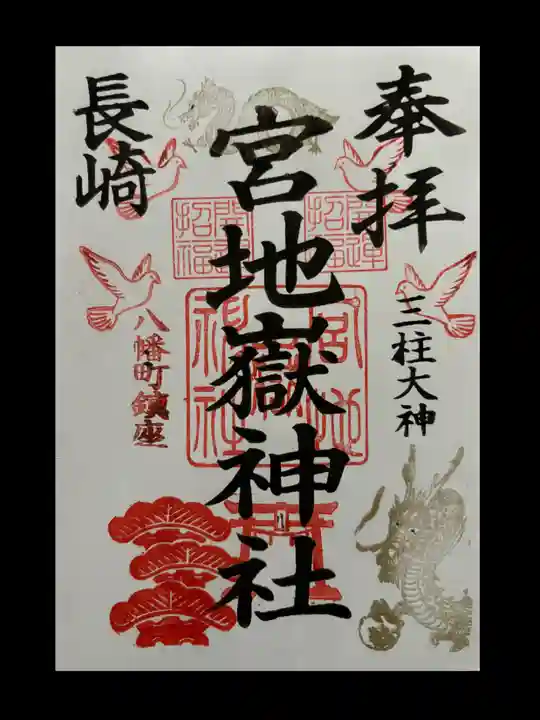 奉拝
三柱大神
宮地嶽神社
開運
招福
開運
招福
宮地
嶽
神社
長崎
八幡町鎮座